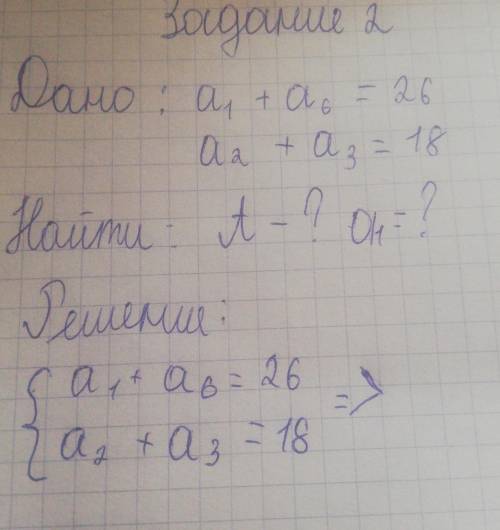 Задание 2
Дано: a₁ + a₆ = 26
a₂ + a₃ = 18
Найти: А - ? an = ?
Решение:
{ a₁ + a₆ = 26
a₂ + a₃ = 18 =>